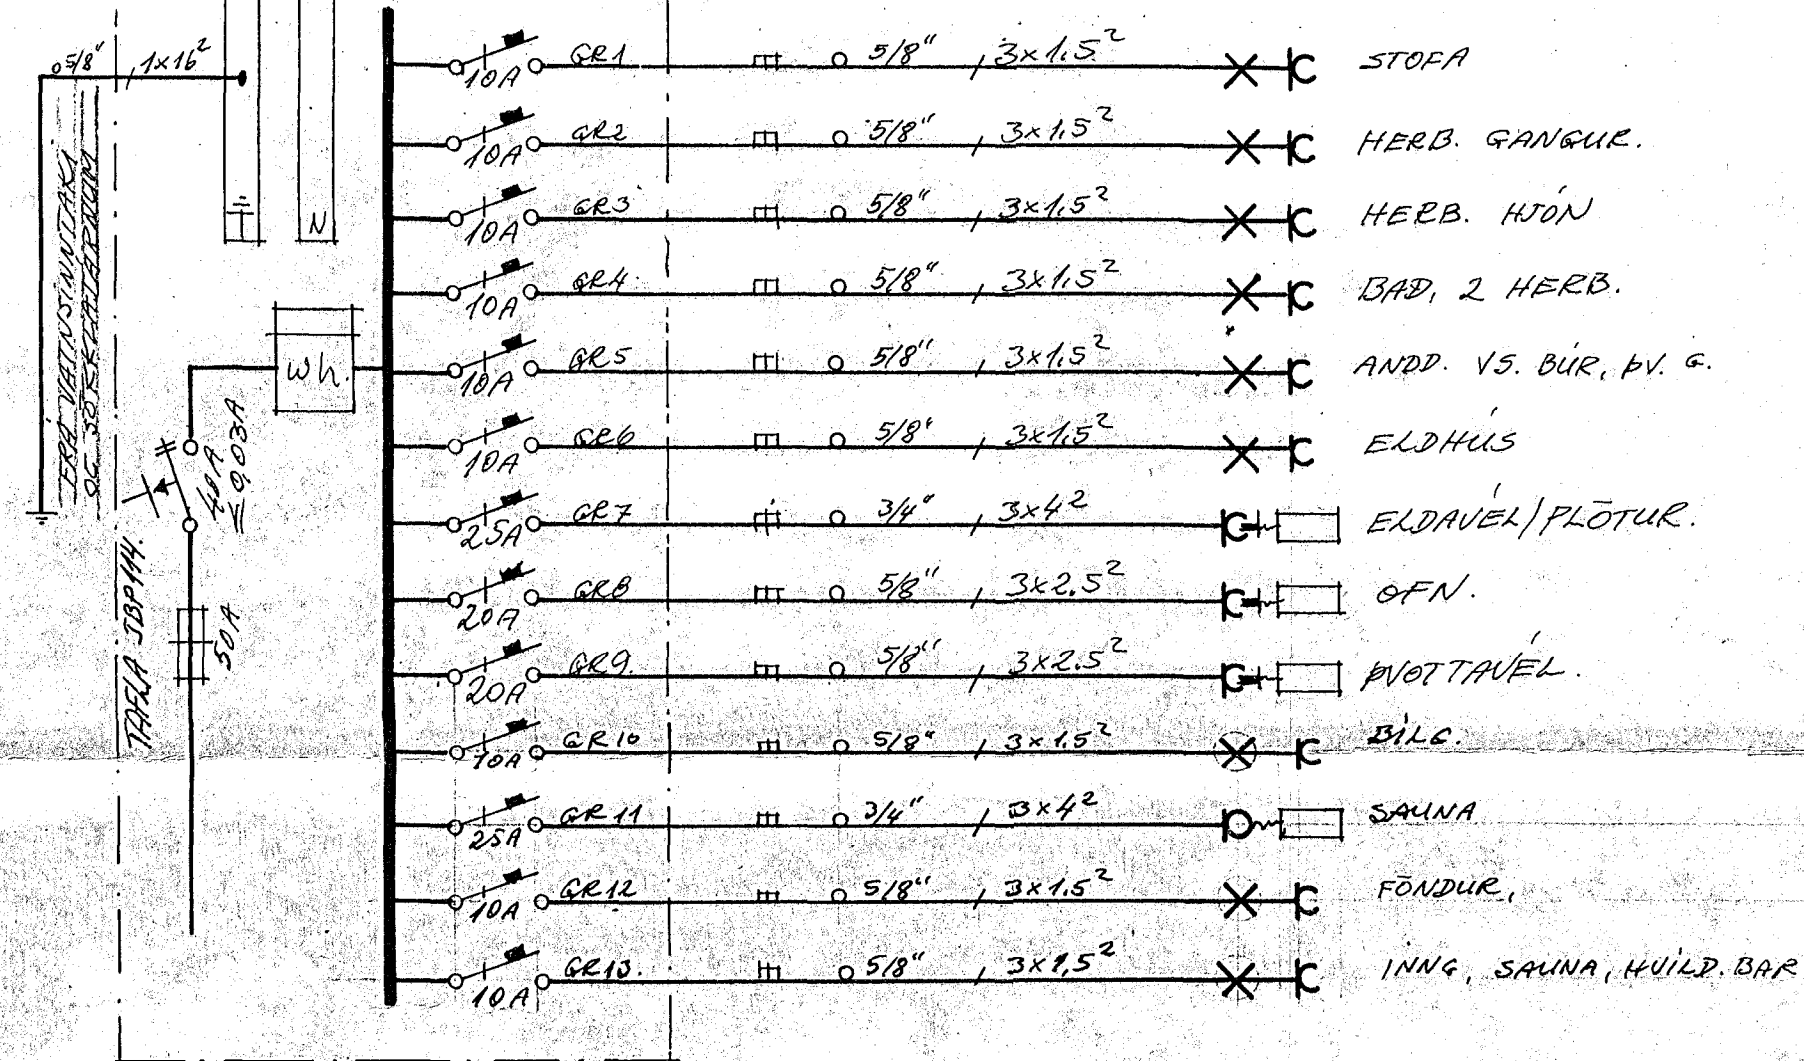 5/8" 1x16²
FRÁ VATNSINNTAKI
OG SÖKKULJÁRNUM
N
Wh.
40A
≤0,03A
50A
TAFLA ÍBP144.
10A GR1 5/8" 3x1.5² STOFA
10A GR2 5/8" 3x1.5² HERB. GANGUR.
10A GR3 5/8" 3x1,5² HERB. HJÓN
10A GR4 5/8" 3x1,5² BAÐ, 2 HERB.
10A GR5 5/8" 3x1,5² ANDD. VS. BÚR, ÞV. G.
10A GR6 5/8" 3x1,5² ELDHÚS
25A GR7 3/4" 3x4² ELDAVÉL/PLÖTUR.
20A GR8 5/8" 3x2.5² OFN.
20A GR9. 5/8" 3x2.5² ÞVOTTAVÉL.
10A GR10 5/8" 3x1.5² BÍLG.
25A GR11 3/4" 3x4² SAUNA
10A GR12 5/8" 3x1.5² FÖNDUR,
10A GR13. 5/8" 3x1,5² INNG, SAUNA, HVÍLD. BAR